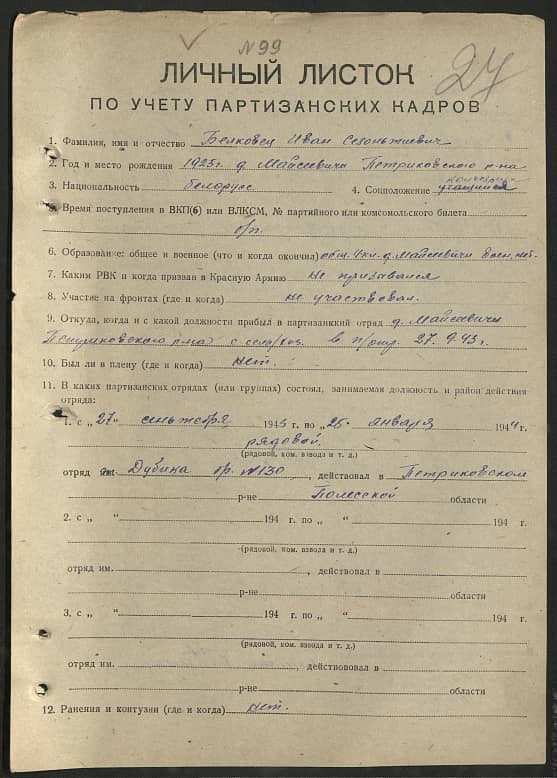 № 99
27
ЛИЧНЫЙ ЛИСТОК
ПО УЧЕТУ ПАРТИЗАНСКИХ КАДРОВ
1. Фамилия, имя и отчество Белковец Иван
2. Год и место рождения 1925 г. д. Майсеевичи Петриковского р-на
3. Национальность белорус 4. Соцположение учащийся
5. Время поступления в ВКП(б) или ВЛКСМ, № партийного или комсомольского билета
б/п.
6. Образование: общее и военное (что и когда окончил) общ. 4 кл. д. Майсеевичи Воен. нет.
7. Каким РВК и когда призван в Красную Армию не призывался
8. Участие на фронтах (где и когда) не участвовал.
9. Откуда, когда и с какой должности прибыл в партизанский отряд д. Майсеевичи
Петриковского р-на с сель/хоз. в п/отр. 27.9.43 г.
10. Был ли в плену (где и когда) нет.
11. В каких партизанских отрядах (или группах) состоял, занимаемая должность и район действия
отряда:
1. с „27“ сентября 1943 г. по „25“ января 1944 г.
рядовой.
(рядовой, ком. взвода и т. д.)
отряд им. Дубина бр. №130, действовал в Петриковском
р-не Полесской области
2. с „ “ 194 г. по „ “ 194 г.
(рядовой, ком. взвода и т. д.)
отряд им. , действовал в
р-не области
3. с „ “ 194 г. по „ “ 194 г.
(рядовой, ком. взвода и т. д.)
отряд им. , действововал в
р-не области
12. Ранения и контузии (где и когда) нет.